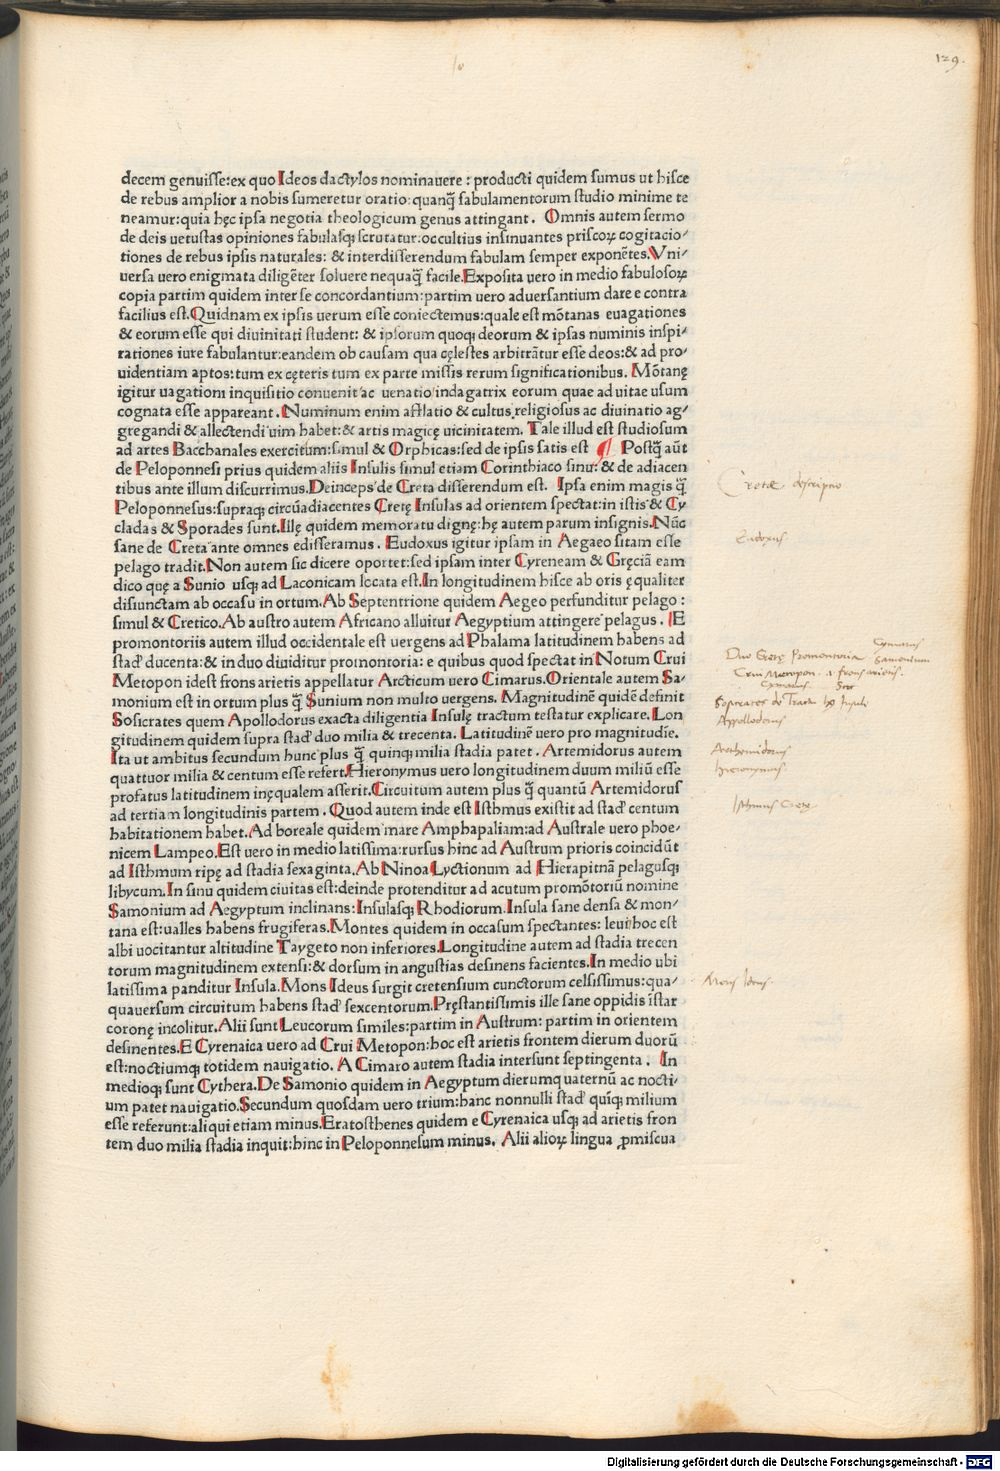 129.
decem genuisse:ex quo Ideos dactylos nominauere : producti quidem sumus ut hisce
de rebus amplior a nobis sumeretur oratio: quanq̃ fabulamentorum studio minime te
neamur:quia hęc ipsa negotia theologicum genus attingant. Omnis autem sermo
de deis uetustas opiniones fabulasq; scrutatur:occultius insinuantes priscoꝝ cogitacio⸗
tiones de rebus ipsis naturales: & interdisserendum fabulam semper exponẽtes.Vni⸗
uersa uero enigmata diligẽter soluere nequaq̃ facile.Exposita uero in medio fabulosoꝝ
copia partim quidem inter se concordantium:partim uero aduersantium dare e contra
facilius est.Quidnam ex ipsis uerum esse coniectemus:quale est mõtanas euagationes
& eorum esse qui diuinitati student: & ipsorum quoq; deorum & ipsas numinis inspi⸗
rationes iure fabulantur:eandem ob causam qua cęlestes arbitrãtur esse deos:& ad pro⸗
uidentiam aptos:tum ex cęteris tum ex parte missis rerum significationibus. Mõtanę
igitur uagationi inquisitio conuenit ac uenatio indagatrix eorum quae ad uitae usum
cognata esse appareant. Numinum enim afflatio & cultus religiosus ac diuinatio ag⸗
gregandi & allectendi uim habet:& artis magicę uicinitatem. Tale illud est studiosum
ad artes Bacchanales exercitum:simul & Orphicas:sed de ipsis satis est ¶ Postq̃ aũt
de Peloponnesi prius quidem aliis Insulis simul etiam Corinthiaco sinu: & de adiacen
tibus ante illum discurrimus.Deinceps de Creta disserendum est. Ipsa enim magis q̃
Peloponnesus:supraq; circũadiacentes Cretę Insulas ad orientem spectat:in istis & Cy
cladas & Sporades sunt.Illę quidem memoratu dignę:hę autem parum insignis.Nũc
sane de Creta ante omnes edisseramus. Eudoxus igitur ipsam in Aegaeo sitam esse
pelago tradit.Non autem sic dicere oportet:sed ipsam inter Cyreneam & Gręciã eam
dico quę a Sunio usq; ad Laconicam locata est.In longitudinem hisce ab oris ęqualiter
disiunctam ab occasu in ortum.Ab Septentrione quidem Aegeo perfunditur pelago :
simul & Cretico.Ab austro autem Africano alluitur Aegyptium attingere pelagus. E
promontoriis autem illud occidentale est uergens ad Phalama latitudinem habens ad
stad' ducenta:& in duo diuiditur promontoria: e quibus quod spectat in Notum Crui
Metopon idest frons arietis appellatur Arcticum uero Cimarus.Orientale autem Sa⸗
monium est in ortum plus q̃ Sunium non multo uergens. Magnitudinẽ quidẽ definit
Sosicrates quem Apollodorus exacta diligentia Insulę tractum testatur explicare. Lon
gitudinem quidem supra stad' duo milia & trecenta. Latitudinẽ uero pro magnitudĩe.
Ita ut ambitus secundum hunc plus q̃ quinq; milia stadia patet. Artemidorus autem
quattuor milia & centum esse refert.Hieronymus uero longitudinem duum miliũ esse
profatus latitudinem inęqualem asserit.Circuitum autem plus q̃ quantũ Artemidorus
ad tertiam longitudinis partem. Quod autem inde est Isthmus existit ad stad' centum
habitationem habet.Ad boreale quidem mare Amphapaliam:ad Australe uero phoe⸗
nicem Lampeo.Est uero in medio latissima:rursus hinc ad Austrum prioris coincidũt
ad Isthmum ripę ad stadia sexaginta.Ab Ninoa Lyctionum ad Hierapitnã pelagusq;
libycum.In sinu quidem ciuitas est:deinde protenditur ad acutum promõtoriũ nomine
Samonium ad Aegyptum inclinans:Insulasq; Rhodiorum.Insula sane densa & mon⸗
tana est:ualles habens frugiferas.Montes quidem in occasum spectantes: leui hoc est
albi uocitantur altitudine Taygeto non inferiores.Longitudine autem ad stadia trecen
torum magnitudinem extensi:& dorsum in angustias desinens facientes.In medio ubi
latissima panditur Insula.Mons Ideus surgit cretensium cunctorum celsissimus:qua⸗
quauersum circuitum habens stad' sexcentorum.Pręstantissimis ille sane oppidis istar
coronę incolitur.Alii sunt Leucorum similes:partim in Austrum: partim in orientem
desinentes.E Cyrenaica uero ad Crui Metopon:hoc est arietis frontem dierum duorũ
est:noctiumq; totidem nauigatio. A Cimaro autem stadia intersunt septingenta. In
medioq; sunt Cythera.De Samonio quidem in Aegyptum dierumq uaternũ ac nocti⸗
um patet nauigatio.Secundum quosdam uero trium:hanc nonnulli stad' quĩq; milium
esse referunt:aliqui etiam minus.Eratosthenes quidem e Cyrenaica usq; ad arietis fron
tem duo milia stadia inquit:hinc in Peloponnesum minus. Alii alioꝝ lingua ꝓmiscua
Cretae descriptio
Eudoxus
Duo Cretę Promontoria
Cymarus
Samonium
Criu Metopon .i. frons arietis.
Sosicrates de Tractu
Appollodorus
Arthemidorus
Hieronymus
Isthmus Cretę
Mons Ideus.
Digitalisierung gefördert durch die Deutsche Forschungsgemeinschaft - DFG